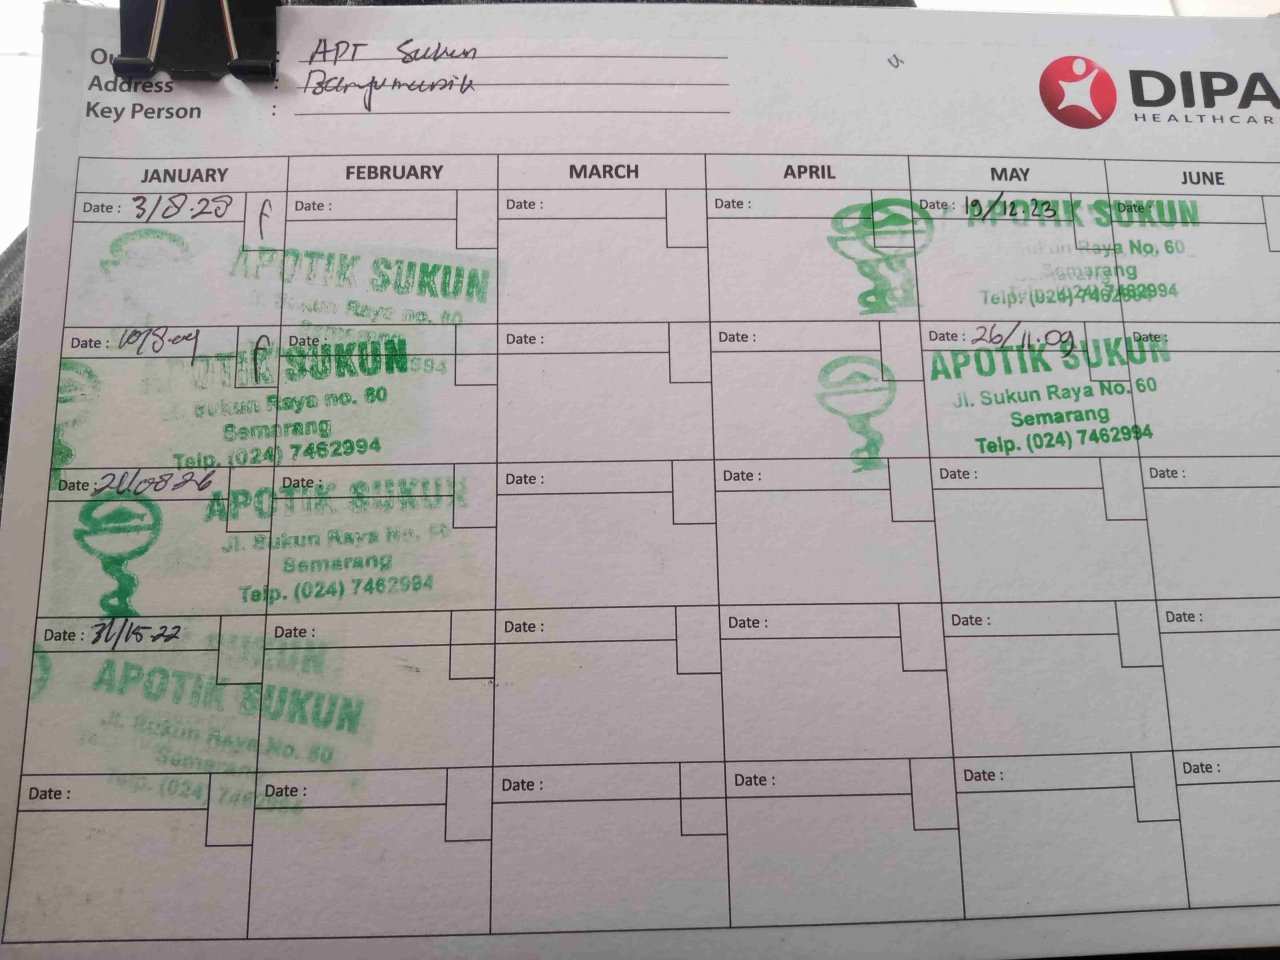 : APT Sukun
Address : Banyumanik
Key Person :
DIPA
HEALTHCAR
JANUARY FEBRUARY MARCH APRIL MAY JUNE
Date : 3/8.23 f Date : Date : Date : Date : 19/12.23 Date :
APOTIK SUKUN
Jl. Sukun Raya no. 60
Semarang
APOTIK SUKUN
Sukun Raya No. 60
Semarang
Telp. (024) 7462994
Date : f Date : Date : Date : Date : 26/11.09 Date :
APOTIK SUKUN
Jl. Sukun Raya no. 60
Semarang
Telp. (024) 7462994
APOTIK SUKUN
Jl. Sukun Raya No. 60
Semarang
Telp. (024) 7462994
Date : Date : Date : Date : Date : Date :
APOTIK SUKUN
Jl. Sukun Raya No. 60
Semarang
Telp. (024) 7462994
Date : 31/15-22 Date : Date : Date : Date : Date :
SUKUN
APOTIK SUKUN
Jl. Sukun Raya No. 60
Semarang
Telp. (024) 7462994
Date : Date : Date : Date : Date : Date :